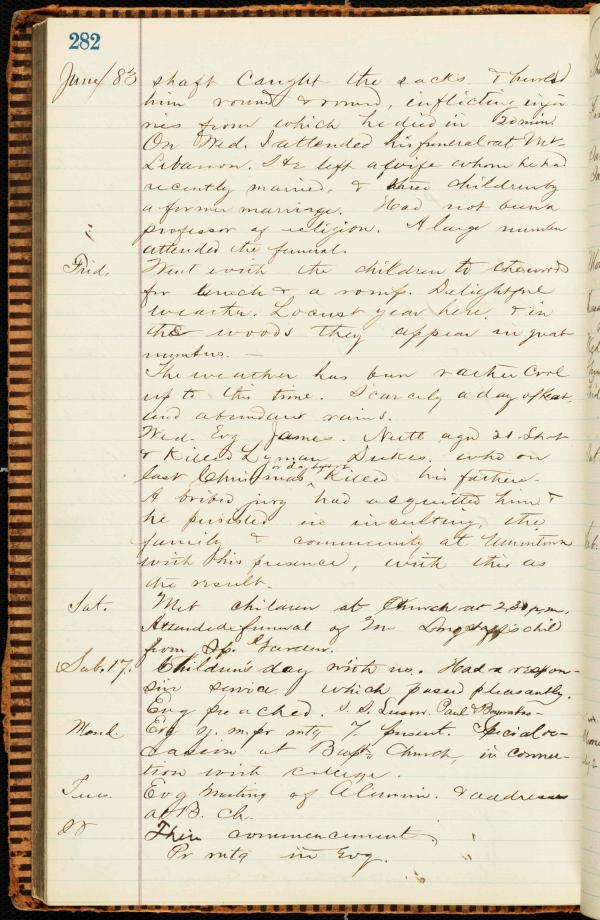 282
June/83 shaft caught the sacks & hurled
him round & round, inflicting inju-
ries from which he died in 20 min
On Wed. I attended his funeral at Mt-
Lebanon. He left a wife whom he had
recently married, & three children by
a former marriage. Had not been a
professor of religion. A large number
attended the funeral.
Frid. Went with the children to the woods
for lunch & a romp. Delightful
weather. Locust year here, & in
the woods they appear in great
numbers. —
The weather has been rather cool
up to this time. Scarcely a day of heat,
and abundant rains.
Wed. Evg James. Nutt aged 21. Shot
& Killed Lyman Dukes. who on
last Christmas or day before Killed his father.
A bribed jury had acquitted him &
he persisted in insulting, the
family & community at Uniontown
with his presence, with this as
the result.
Sat. Met children at Church at 2,30 p.m.
Attended funeral of Mr Longstaff's child
from Sp. Garden.
Sab. 17. Children's day with us. Had a respon-
sive service which passed pleasantly.
Evg preached. S. S. Lesson. Paul & Barnabas.
Mond. Evg y. m. pr mtg 7 present. Special oc-
casion at Bapt Church, in connec-
tion with college.
Tues. Evg Meeting of Alumni. & address
at B. Ch.
W Their commencement.
Pr mtg in Evg.